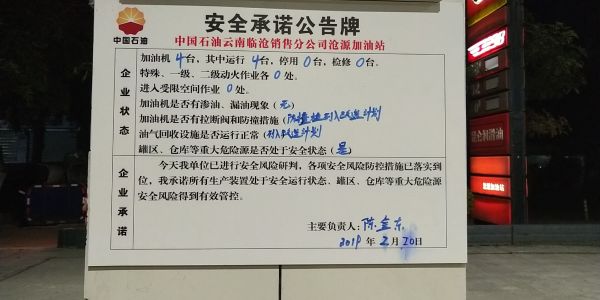 安全承诺公告牌
中国石油
中国石油云南临沧销售分公司沧源加油站
企业状态
加油机 4台，其中运行 4台，停用 0台，检修 0台。
特殊、一级、二级动火作业各 0 处。
进入受限空间作业 0处。
加油机是否有渗油、漏油现象（无）
加油机是否有拉断阀和防撞措施（防撞柱列入改造计划
油气回收设施是否运行正常（列入改造计划
罐区、仓库等重大危险源是否处于安全状态（是）
企业承诺
今天我单位已进行安全风险研判，各项安全风险防控措施已落实到
位，我承诺所有生产装置处于安全运行状态、罐区、仓库等重大危险源
安全风险得到有效管控。
主要负责人：陈金东
2019 年 2 月 20日
昆仑润滑油